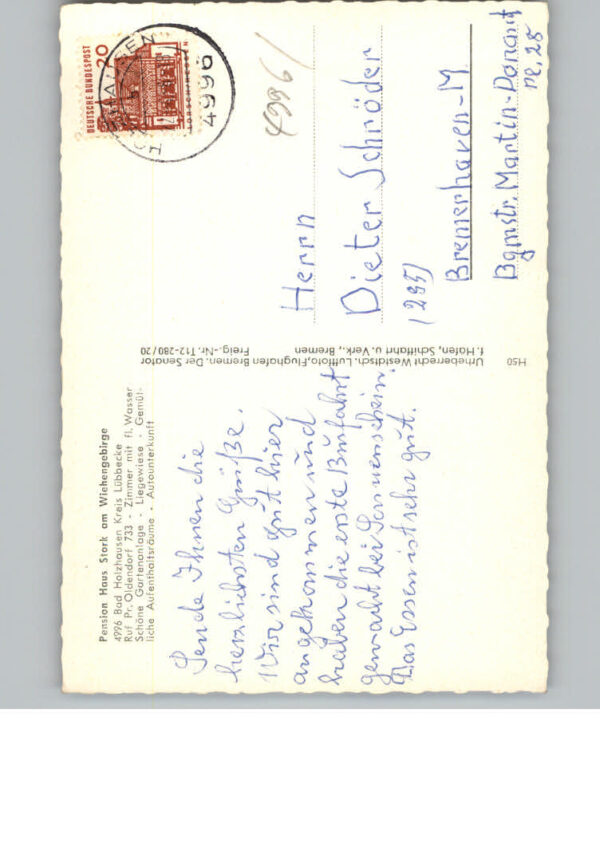 Pension Haus Stork am Wiehengebirge
4996 Bad Holzhausen Kreis Lübbecke
Ruf Pr. Oldendorf 733 - Zimmer mit fl. Wasser
Schöne Gartenanlage - Liegewiese - Gemüt-
liche Aufenthaltsräume - Autounterkunft
Sende Ihnen die
herzlichsten Grüße.
Wir sind gut hier
angekommen und
haben die erste
gemacht bei Sonnenschein.
Das Essen ist sehr gut.
Urheberrecht Westdtsch. Luftfoto, Flughafen Bremen. Der Senator
f. Häfen, Schiffahrt u. Verk., Bremen Freig.-Nr. T12-280/20
H50
DEUTSCHE BUNDESPOST
20
LORSCH/HESSEN
4996
4996/
Herrn
Dieter Schröder
(285)
Bremerhaven-M
Bgmstr. Martin-Donandt